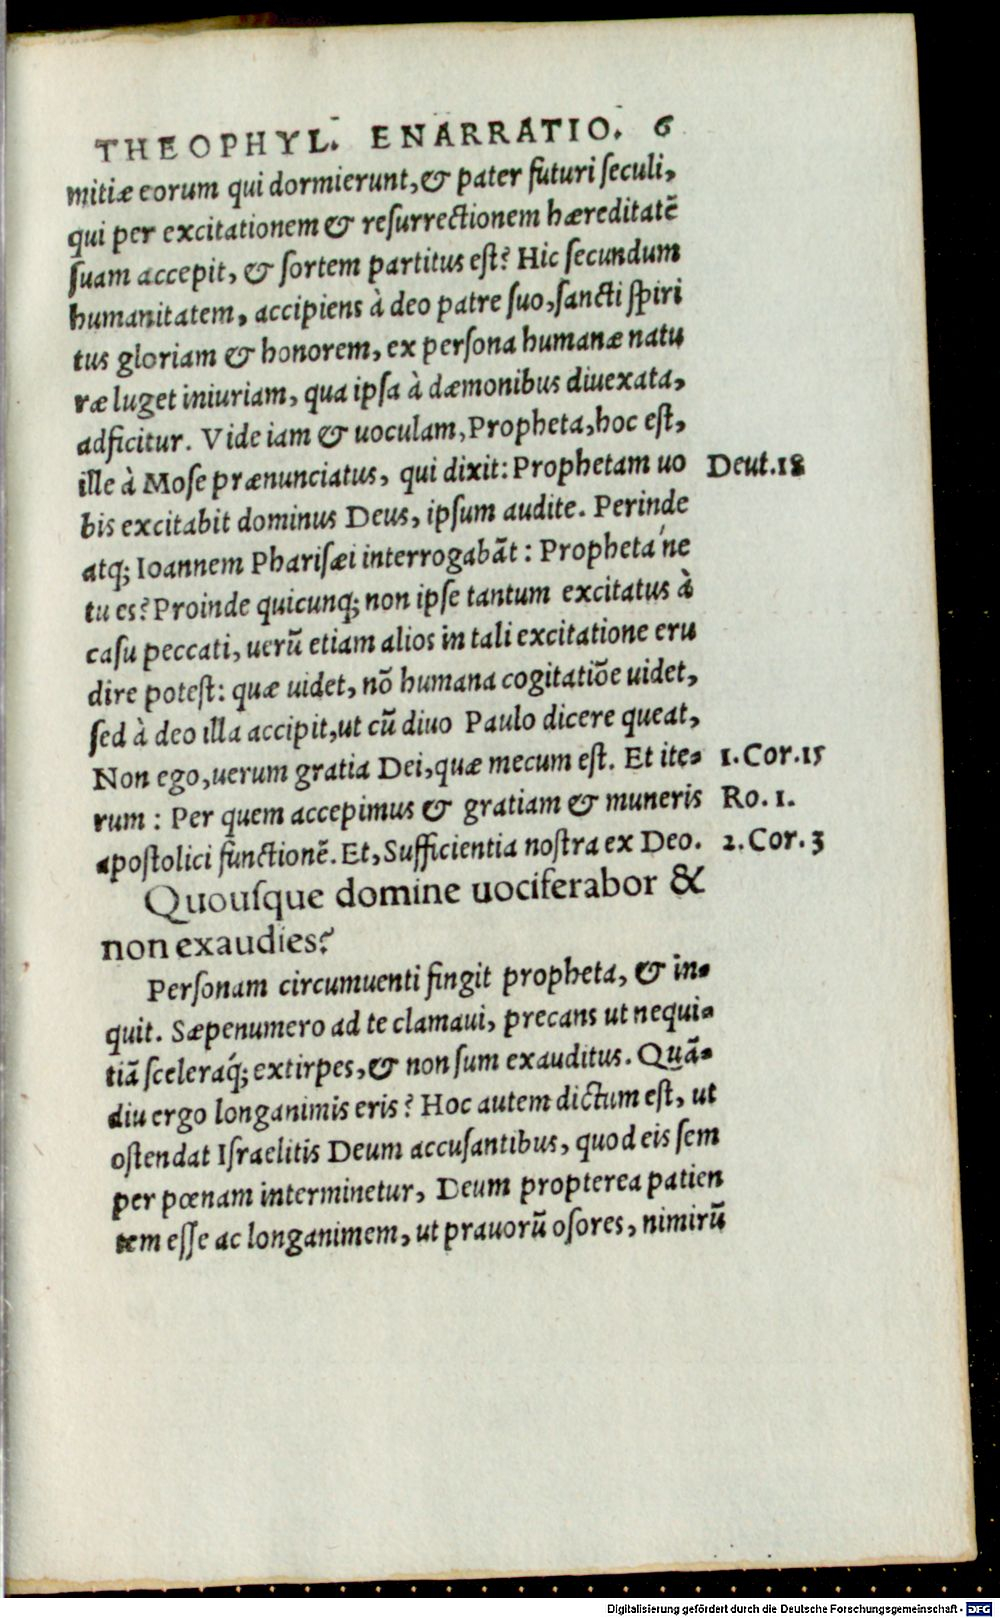 THEOPHYL. ENARRATIO. 6
mitiæ eorum qui dormierunt, & pater futuri ſeculi,
qui per excitationem & reſurrectionem hæreditatē
ſuam accepit, & ſortem partitus eſt? Hic ſecundum
humanitatem, accipiens à deo patre ſuo, ſancti ſpiri
tus gloriam & honorem, ex perſona humanæ natu
ræ luget iniuriam, qua ipſa à dæmonibus diuexata,
adficitur. Vide iam & uoculam, Propheta, hoc eſt,
ille à Moſe prænunciatus, qui dixit: Prophetam uo
Deut.18
bis excitabit dominus Deus, ipſum audite. Perinde
atq; Ioannem Phariſæi interrogabāt: Propheta'ne
tu es? Proinde quicunq; non ipſe tantum excitatus à
caſu peccati, uerū etiam alios in tali excitatione eru
dire poteſt: quæ uidet, nō humana cogitatiōe uidet,
ſed à deo illa accipit, ut cū diuo Paulo dicere queat,
Non ego, uerum gratia Dei, quæ mecum eſt. Et ite-
1. Cor. 15
rum: Per quem accepimus & gratiam & muneris
Ro. 1.
apoſtolici functionē. Et, Sufficientia noſtra ex Deo.
2. Cor. 3
Quouſque domine uociferabor &
non exaudies?
Perſonam circumuenti fingit propheta, & in-
quit. Sæpenumero ad te clamaui, precans ut nequi-
tiā ſceleraq́; extirpes, & non ſum exauditus. Quā-
diu ergo longanimis eris? Hoc autem dictum eſt, ut
oſtendat Iſraelitis Deum accuſantibus, quod eis ſem
per pœnam interminetur, Deum propterea patien
tem eſſe ac longanimem, ut prauorū oſores, nimirū
Digitalisierung gefördert durch die Deutsche Forschungsgemeinschaft - DFG